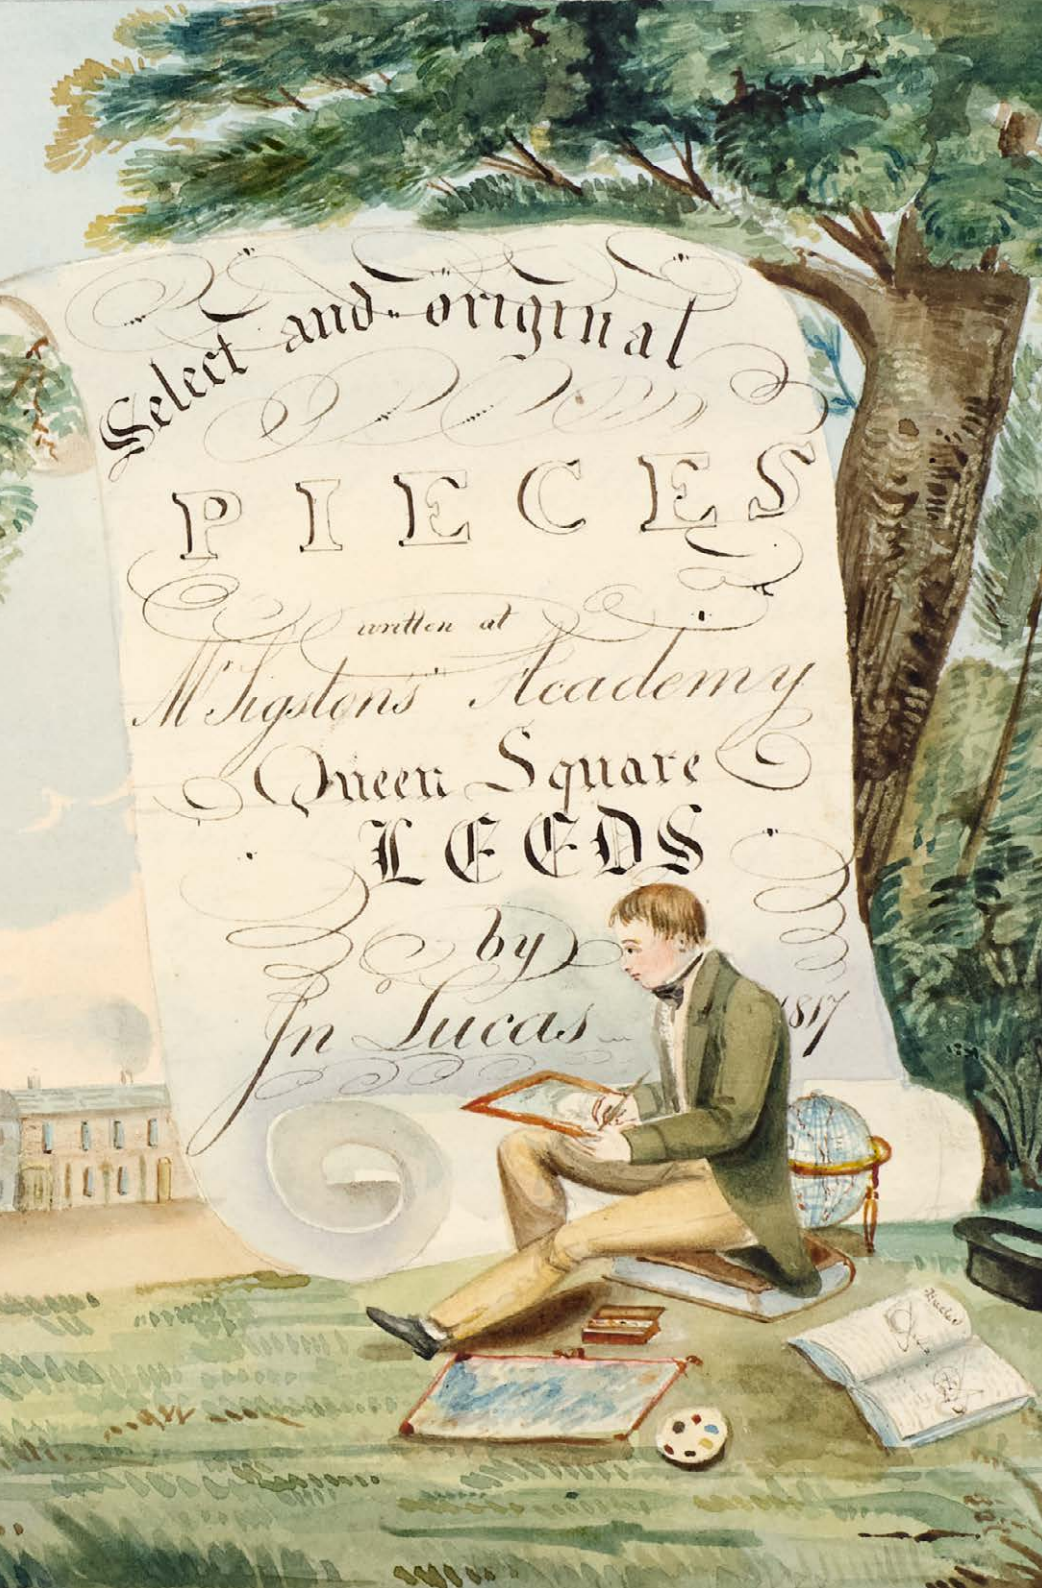 Select and original
PIECES
written at
Mr Sigston's Academy
Queen Square
LEEDS
by
Jn Lucas 1817
Euclid